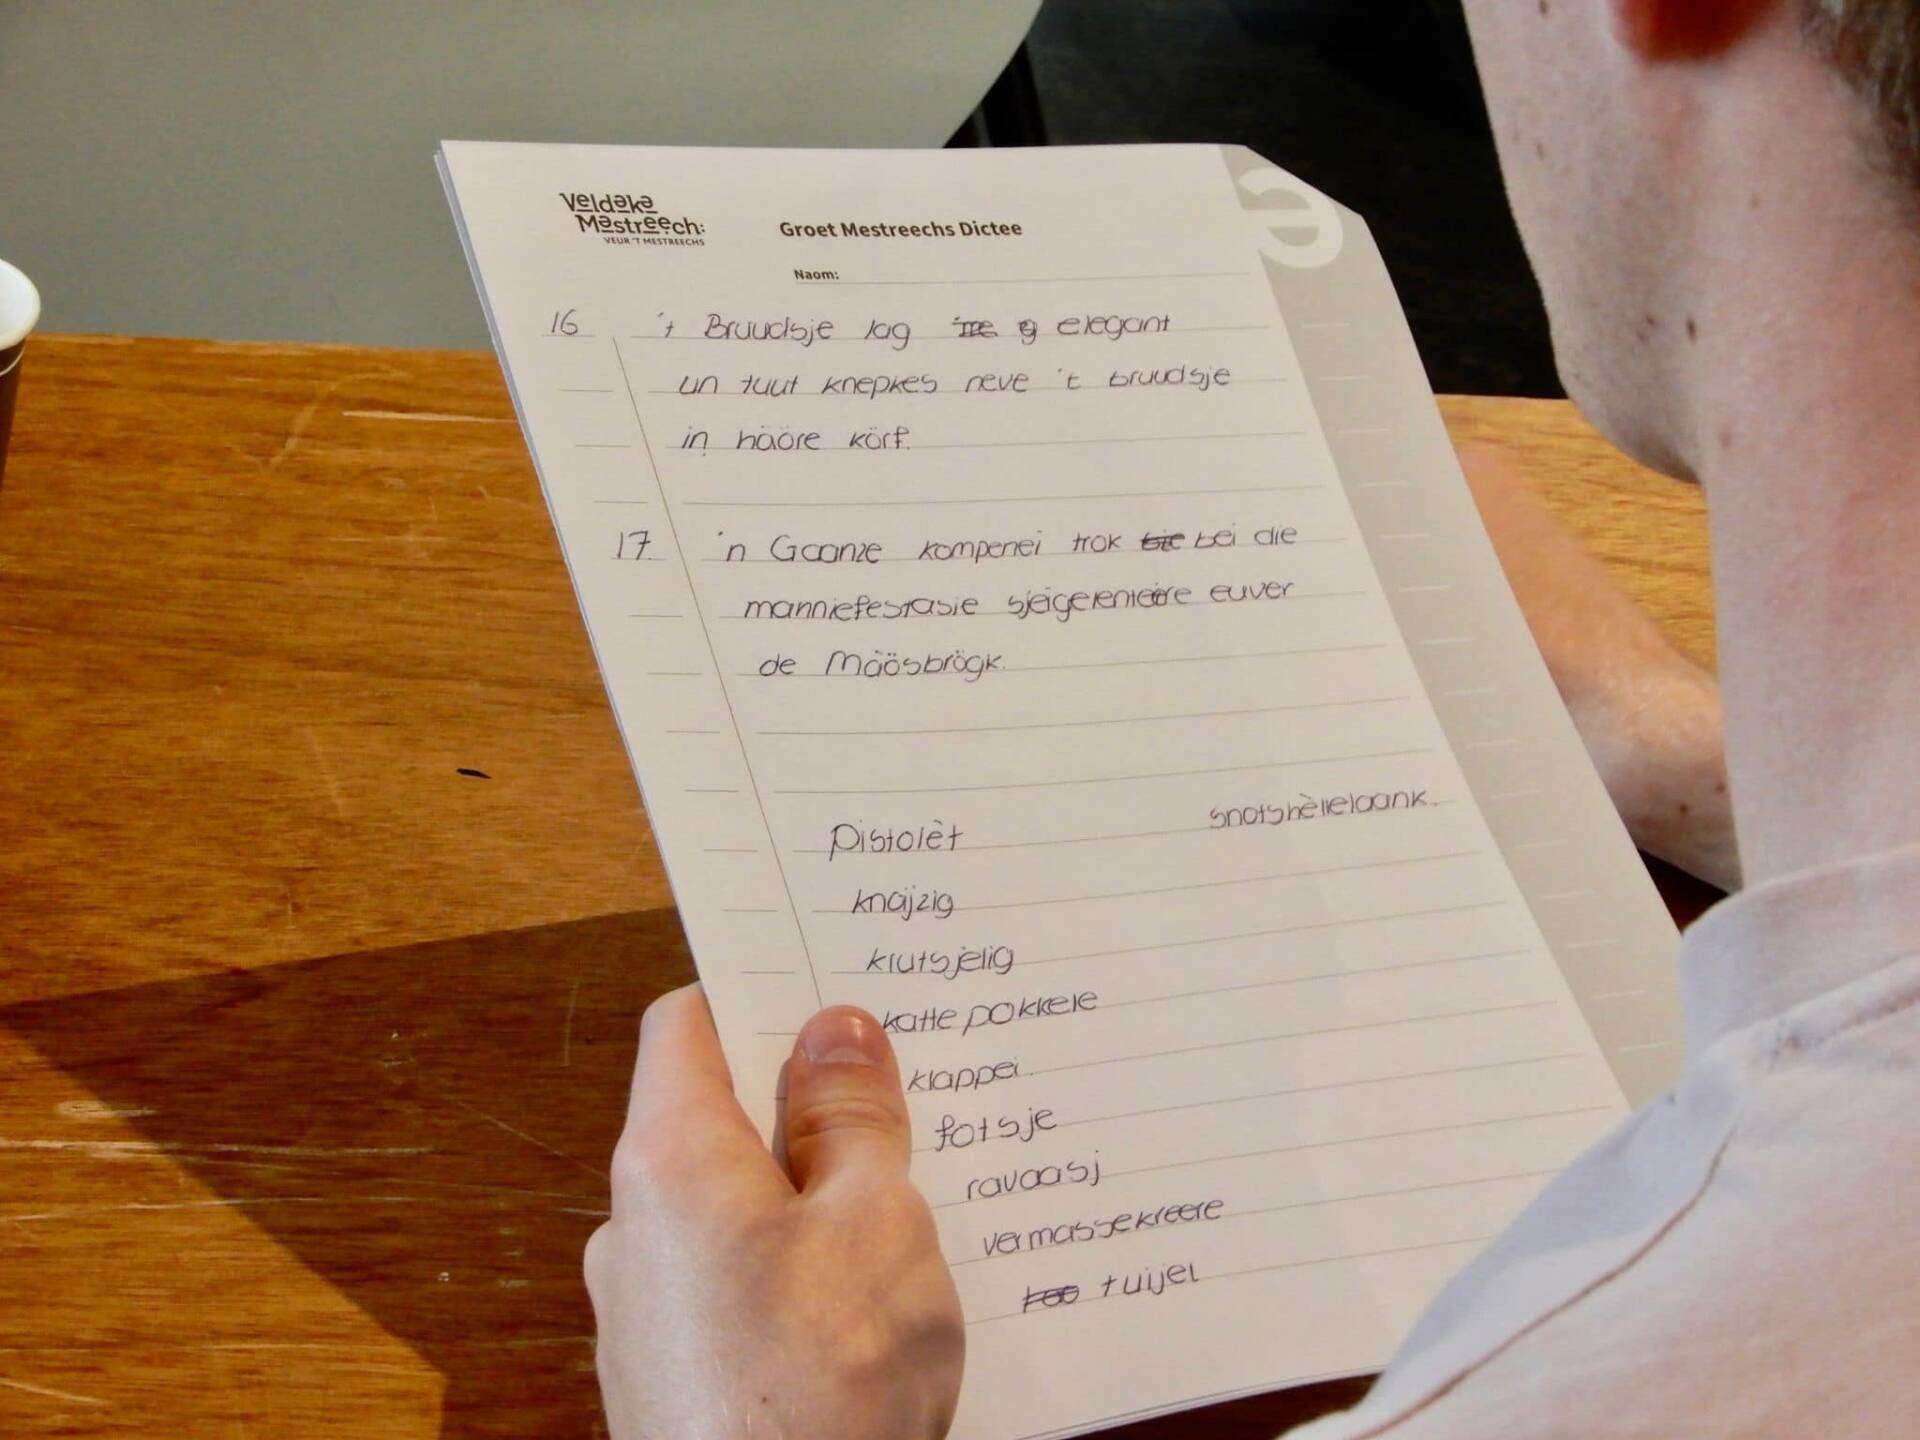 Veldeke
Mestreech:
VEUR 'T MESTREECHS
Groet Mestreechs Dictee
Naom:
16 't Bruudsje lag elegant
un tuut knepkes neve 't bruudsje
in häöre körf.
17. 'n Gaanze kompenei trok bei die
manniefestasie sjeigerenteere euver
de Mäösbrögk.
Pistolèt snotshèllelaank.
knäjzig
klutsjelig
katte pokkele
klappei.
fotsje
ravaasj
vermassekreere
tuijel